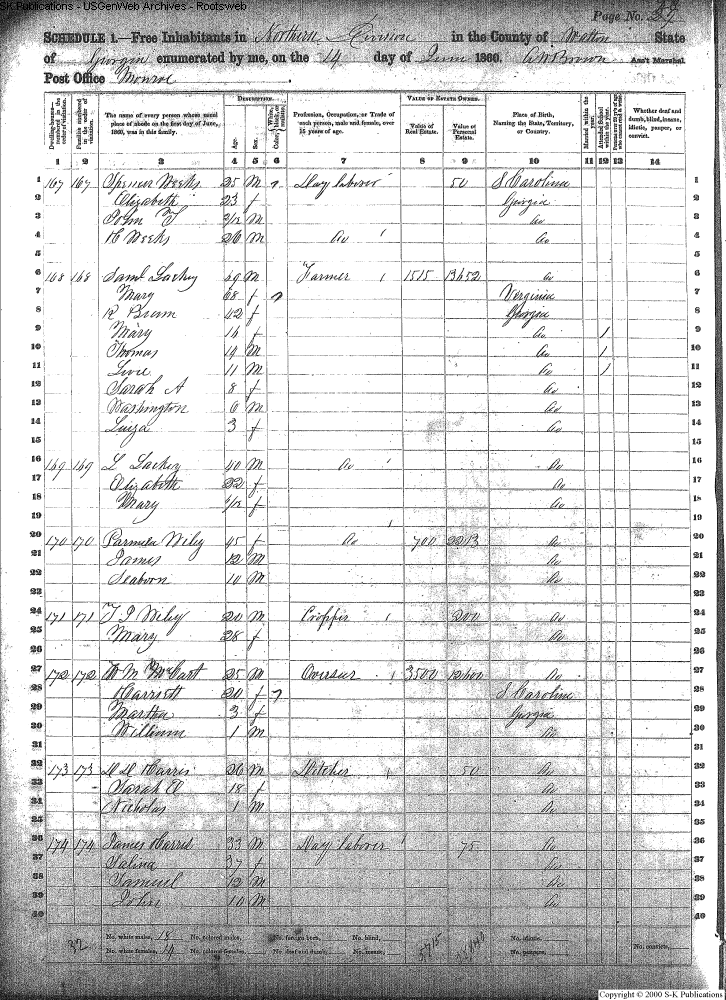 S-K Publications - USGenWeb Archives - Rootsweb
Page No.
SCHEDULE 1.—Free Inhabitants in Northern Division in the County of Walton State
of Georgia enumerated by me, on the 14 day of June 1860. A W Brown Ass't Marshal
Post Office Monroe
Dwelling-houses—numbered in the order of visitation.
Families numbered in the order of visitation.
The name of every person whose usual place of abode on the first day of June, 1860, was in this family.
DESCRIPTION.
Age.
Sex.
Color, White, black, or mulatto.
Profession, Occupation, or Trade of each person, male and female, over 15 years of age.
VALUE OF ESTATE OWNED.
Value of Real Estate.
Value of Personal Estate.
Place of Birth, Naming the State, Territory, or Country.
Married within the year.
Attended School within the year.
Whether deaf and dumb, blind, insane, idiotic, pauper, or convict.
1 2 3 4 5 6 7 8 9 10 11 12 13 14
1 167 167 Spencer Weeks 25 M Day laborer 50 S Carolina 1
2 Elizabeth 23 f Georgia 2
3 John T 3/12 M Do 3
4 H Weeks 26 M Do Do 4
5 5
6 168 168 Saml Lackey 69 M Farmer 1515 13652 Do 6
7 Mary 68 f Virginia 7
8 R Brum 42 f Georgia 8
9 Mary 14 f Do 1 9
10 Thomas 14 M Do 1 10
11 11 M Do 1 11
12 Sarah A 8 f Do 12
13 Washington 6 M Do 13
14 Luiza 3 f Do 14
15 15
16 169 169 L Lackey 40 M Do Do 16
17 Elizabeth 22 f Do 17
18 Mary /12 f Do 18
19 19
20 170 170 Parmela Wiley 45 f Do 700 2213 Do 20
21 James 12 M Do 21
22 Seaborn 10 M Do 22
23 23
24 171 171 T J Wiley 20 M Cropper 200 Do 24
25 Mary 28 f Do 25
26 26
27 172 172 W M McCart 25 M Overseer 3500 12600 Do 27
28 Harriett 20 f S Carolina 28
29 Martha 3 f Georgia 29
30 William 1 M Do 30
31 31
32 173 173 Harris 26 M Ditcher 50 Do 32
33 Sarah 18 f Do 33
34 Nicholas 1 M Do 34
35 35
36 174 174 James Harris 33 M Day laborer 75 Do 36
37 Salina 37 f Do 37
38 Samuel 12 M Do 38
39 John 10 M Do 39
40 40
32 No. white males, 18 No. colored males, No. foreign born, No. blind, 5715 No. idiotic,
No. white females, 14 No. colored females, No. deaf and dumb, No. insane, No. paupers, No. convicts,
Copyright © 2000 S-K Publications